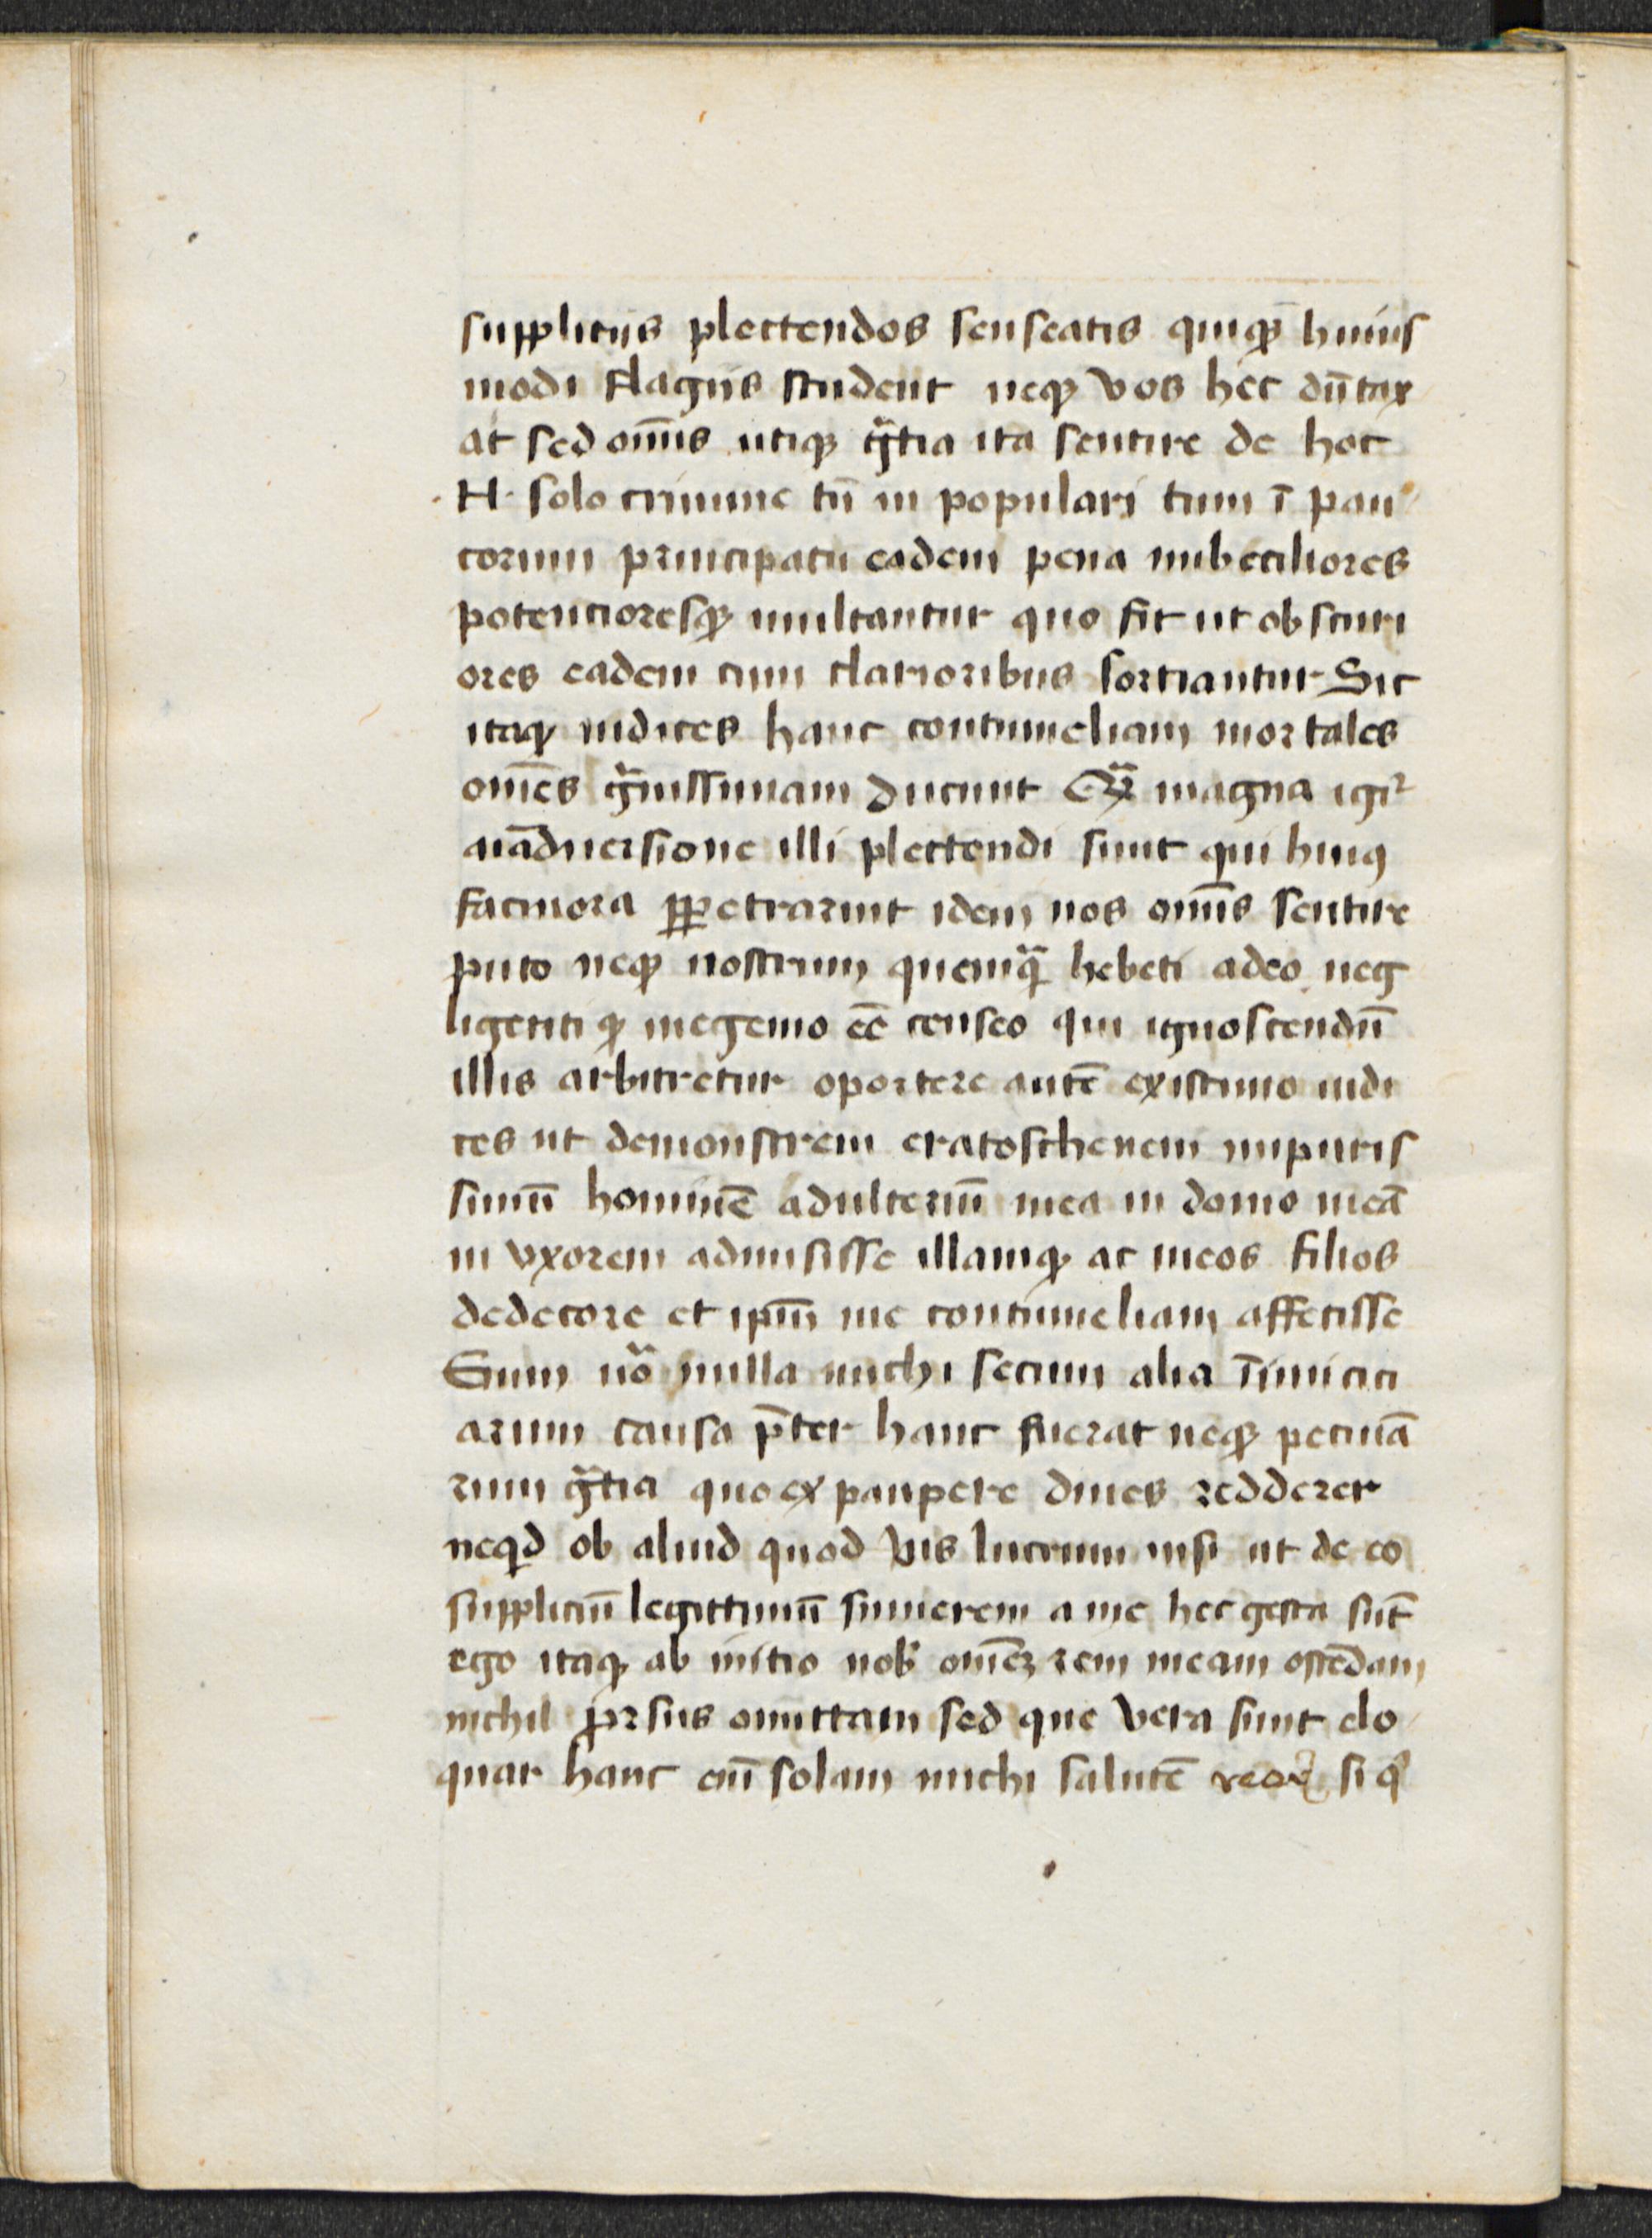 supplicijs plectendos senseatis quiqꝫ huius
modi flagiis student neqꝫ vos hec dūtax
at sed om̄is utiqꝫ gr̄tia ita sentire de hoc
·H· solo crimine tū in populari tum ī pau
corum principatu eadem pena imbeciliores
potencioresqꝫ multantur quo fit ut obscuri
ores eadem cum clarioribus sortiantur Sic
itaqꝫ iudices hanc contumeliam mortales
om̄es gͣuissimam ducunt Qͣ magna igiͬ
aīaduersione illi plectendi sunt qui huiꝰ
facinora ꝑpetrarint idem nos om̄is sentire
puto neqꝫ nostrum quemqͣ hebeti adeo neg
ligentiqꝫ ingenio eē censeo qui ignoscendū
illis arbitretur oportere autē existimo iudi
ces ut demonstrem eratosthenem impuris
simū hominē adulteriū mea in domo meā
in vxorem admisisse illamqꝫ ac meos filios
dedecore et ip̄m me contumeliam affecisse
Cum uͦo nulla michi secum alia īimicici
arum causa p̄ter hanc fuerat neqꝫ pecuniā
rum gr̄tia quo ex paupere diues redderer
neqꝫ ob aliud quod vis lucrum nisi ut de eo
suppliciū legittimū sumerem a me hec gesta sūt
ego itaqꝫ ab initio uob̄ om̄eꝫ rem meam ostēdam
nichil ꝓrsus omittam sed que vera sunt elo
quar hanc em̄ solam michi salutē reor si qͥ